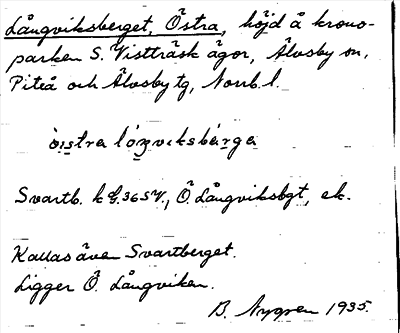 Långviksberget, Östra, höjd å krono-
parken S. Vistträsk ägor, Älvsby sn,
Piteå och Älvsby tg, Norrb. l.
östra lóŋviksbärga
Svartb. k G.36SV., Ö. Långviksbgt, ek.
Kallas även Svartberget.
Ligger Ö. Långviken.
B. Nygren 1935.